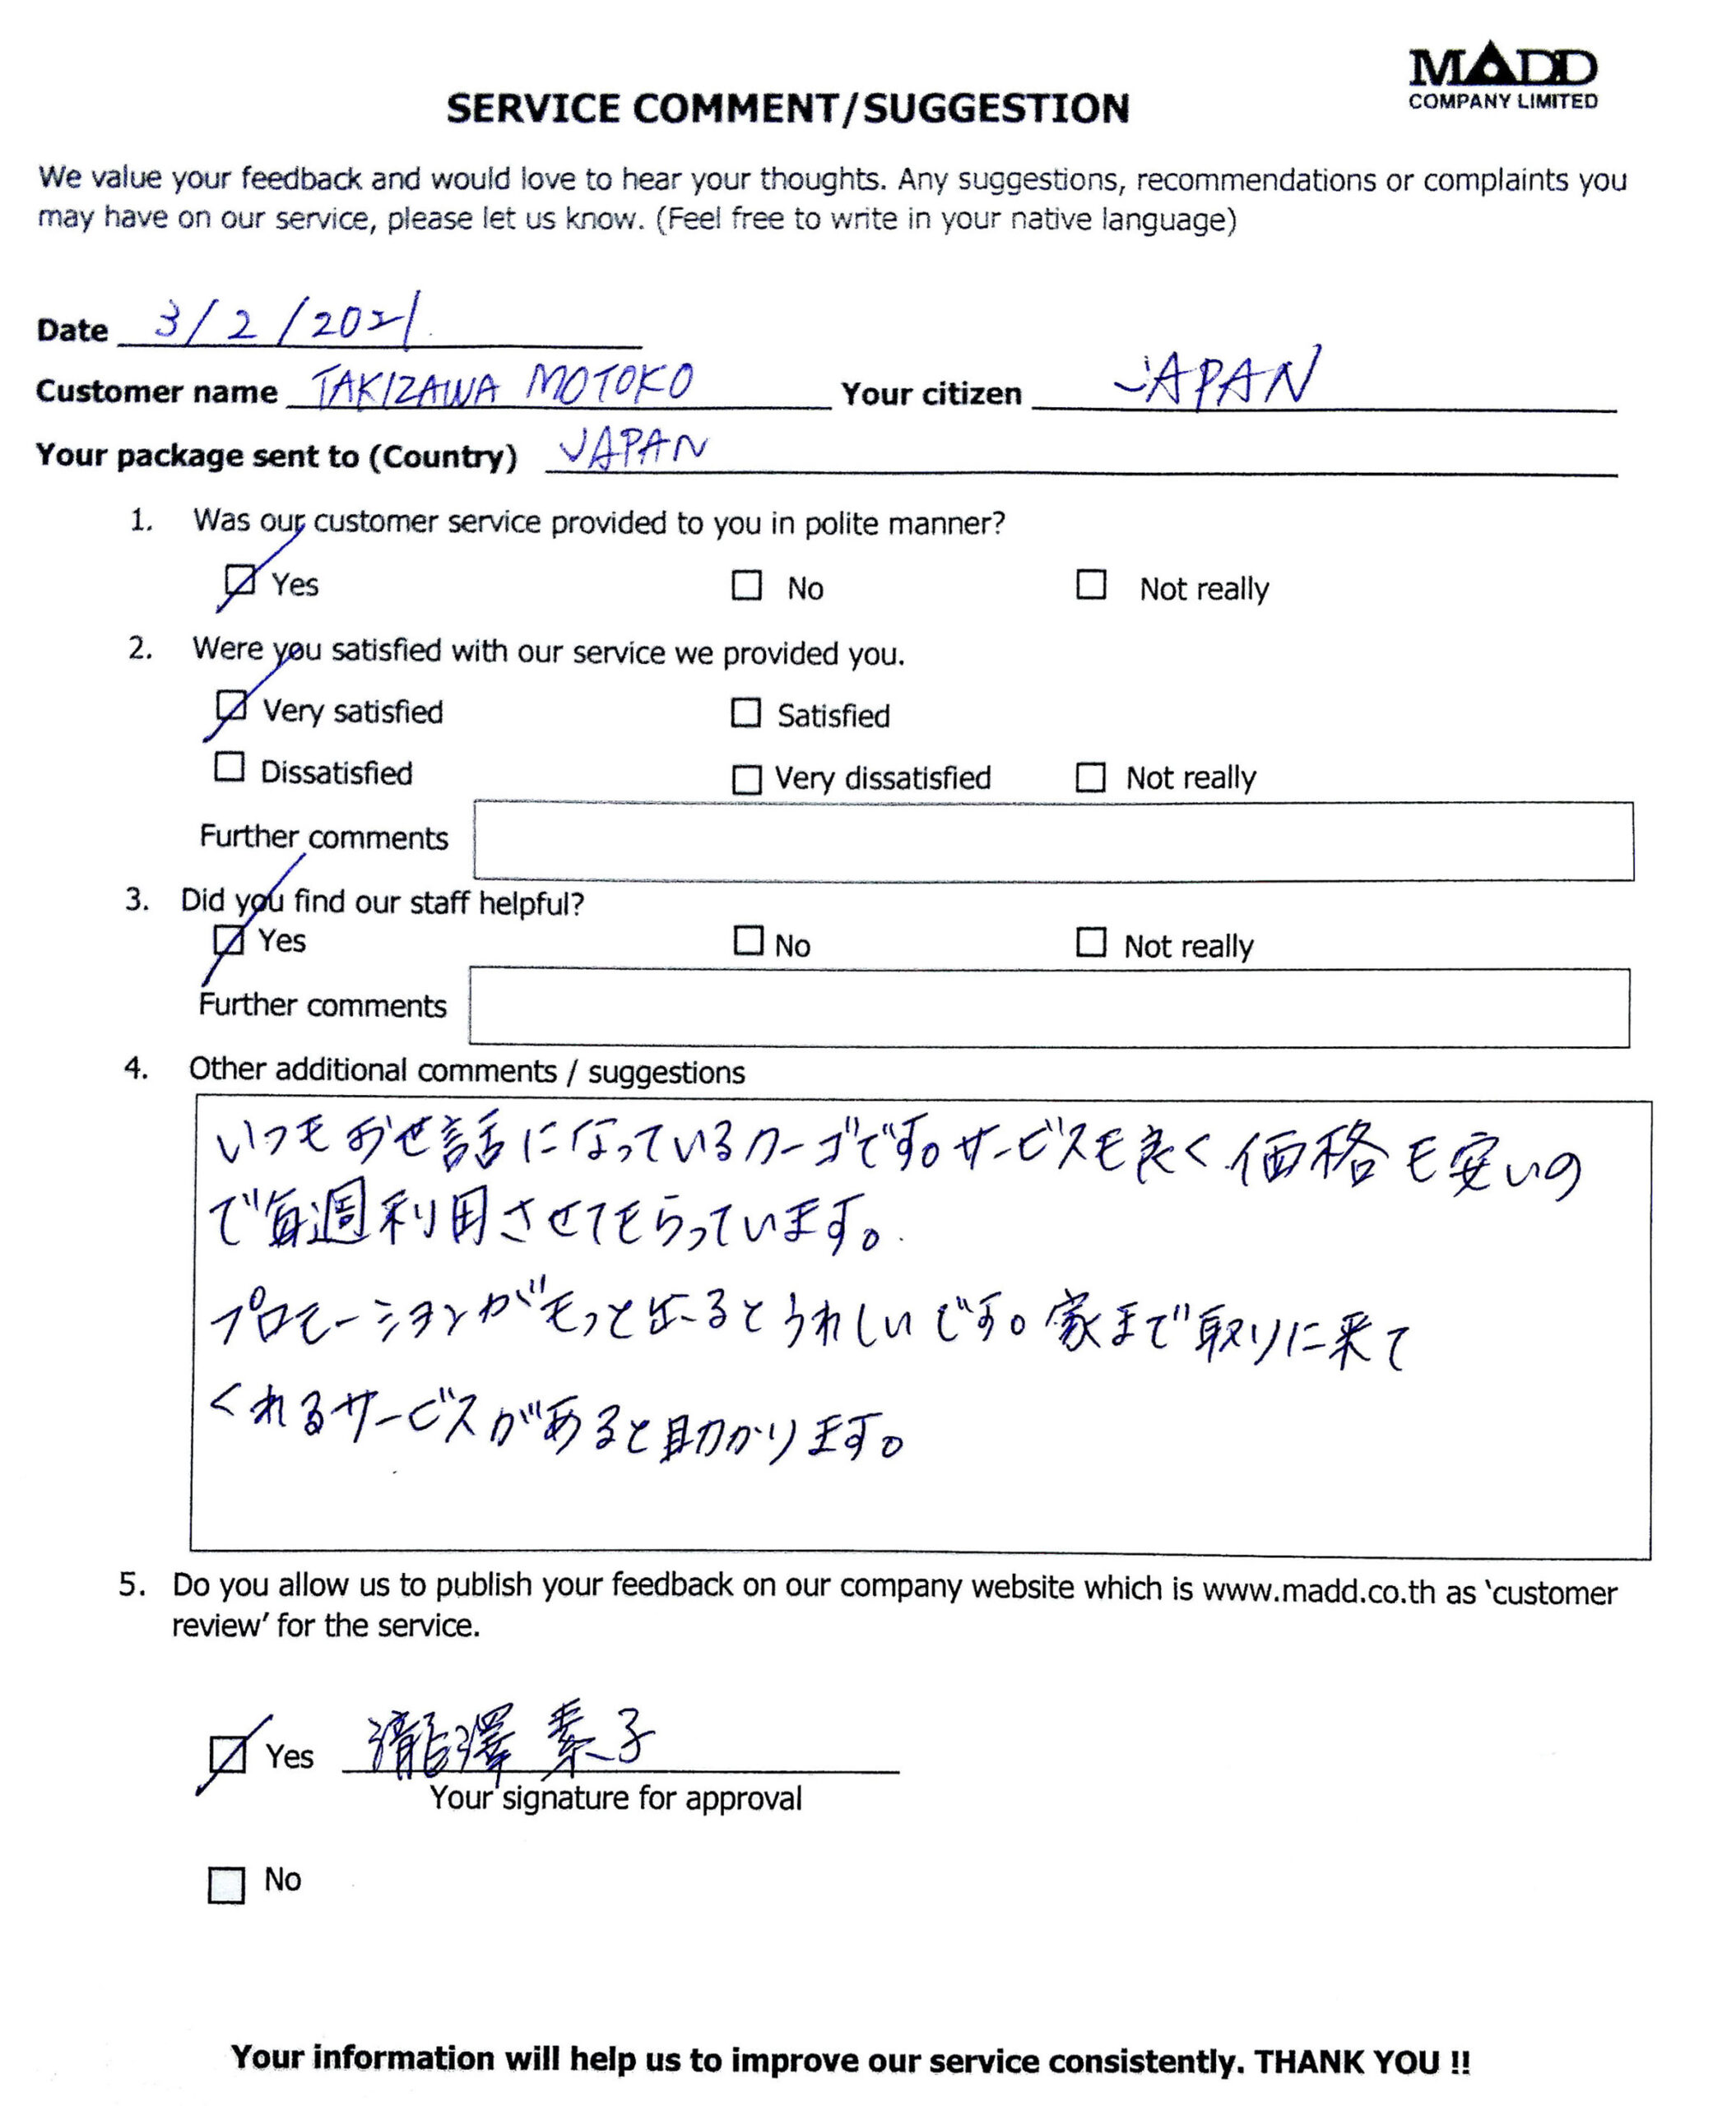 MADD
COMPANY LIMITED
SERVICE COMMENT/SUGGESTION
We value your feedback and would love to hear your thoughts. Any suggestions, recommendations or complaints you
may have on our service, please let us know. (Feel free to write in your native language)
Date 3/2/2021
Customer name TAKIZAWA MOTOKO Your citizen JAPAN
Your package sent to (Country) JAPAN
1. Was our customer service provided to you in polite manner?
Yes No Not really
2. Were you satisfied with our service we provided you.
Very satisfied Satisfied
Dissatisfied Very dissatisfied Not really
Further comments
3. Did you find our staff helpful?
Yes No Not really
Further comments
4. Other additional comments / suggestions
いつもお世話になっているカーゴです。サービスも良く価格も安いの
で毎週利用させてもらっています。
プロモーションがもっと出るとうれしいです。家まで取りに来て
くれるサービスがあると助かります。
5. Do you allow us to publish your feedback on our company website which is www.madd.co.th as ‘customer
review’ for the service.
Yes 瀧澤 素子
Your signature for approval
No
Your information will help us to improve our service consistently. THANK YOU !!